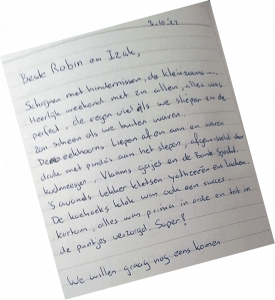 3-10-'22
Beste Robin en Izak,
Schrijven met hindernissen, de kleinzoons....
Heerlijk weekend met z'n allen, alles was
perfect, de regen viel als we sliepen en de
zon scheen als we buiten waren.
De eekhoorns liepen af en aan en waren
druk met pinda's aan het slepen, afgewisseld door
koolmeesjes, Vlaams gaaien en de Bonte Specht.
's avonds lekker kletsen yahtzeeën en lachen.
De koekoeks klok was ook een succes.
kortom, alles was prima in orde en tot in
de puntjes verzorgd. Super!
We willen graag nog eens komen